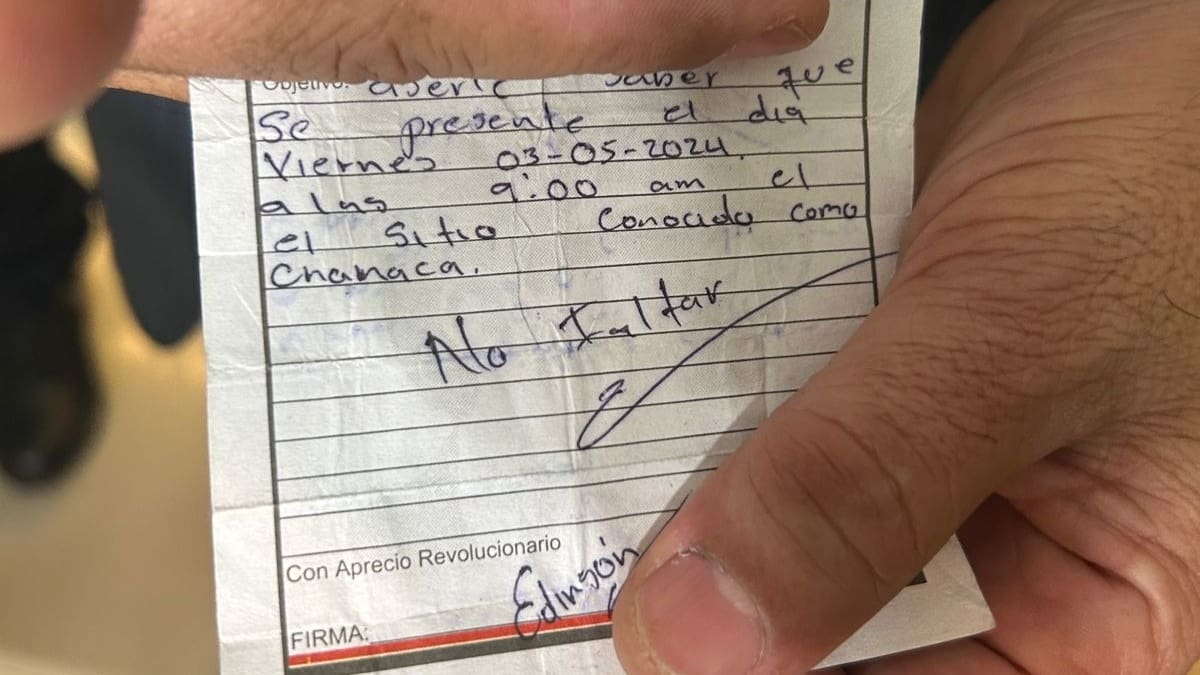 Objetivo: aserle saber que
Se presente el dia
Viernes 03-05-2024.
a las 9:00 am el
el Sitio Conocido como
Chanaca.
No Faltar
Con Aprecio Revolucionario
Edinsón
FIRMA: